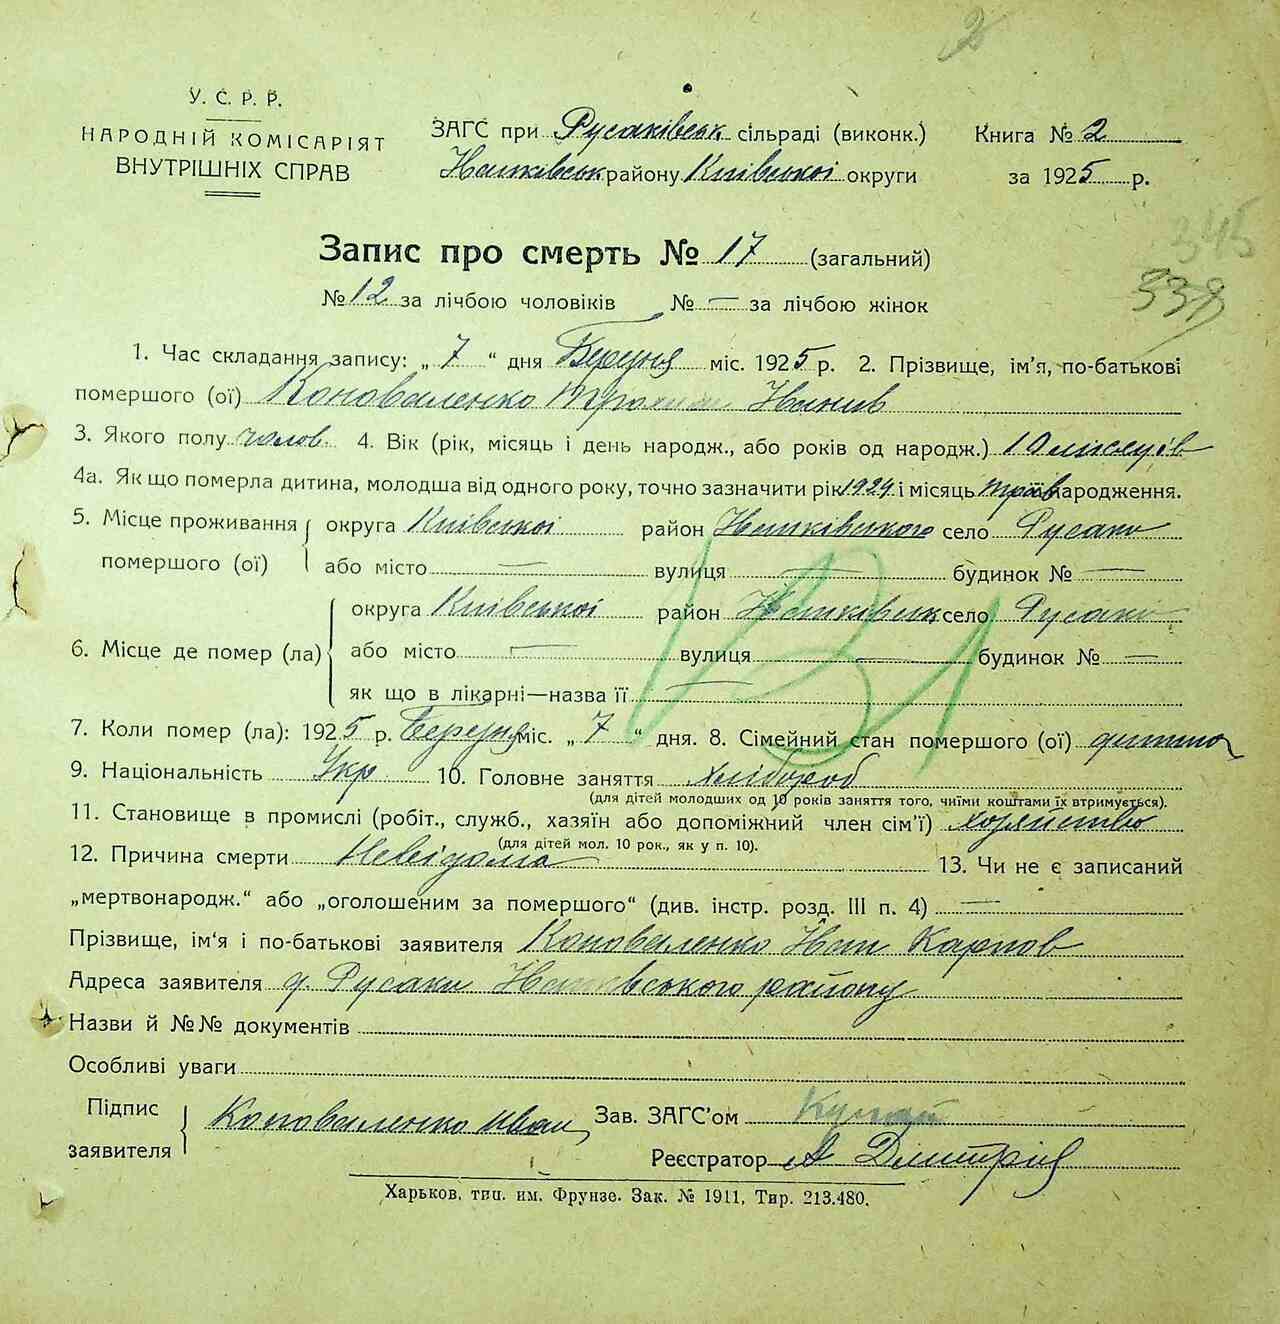 У. С. Р. Р.
НАРОДНІЙ КОМІСАРІЯТ
ВНУТРІШНІХ СПРАВ
ЗАГС при Русаківськ сільраді (виконк.)
району Київської округи
Книга № 2
за 1925 р.
345
338
Запис про смерть № 17 (загальний)
№ 12 за лічбою чоловіків № — за лічбою жінок
1. Час складання запису: „ 7 “ дня Березня міс. 1925 р. 2. Прізвище, ім'я, по-батькові
помершого (ої) Коноваленко Іванів
3. Якого полу чолов. 4. Вік (рік, місяць і день народж., або років од народж.) 10 місяців
4а. Як що померла дитина, молодша від одного року, точно зазначити рік 1924 і місяць народження.
5. Місце проживання помершого (ої) округа Київської район село Русаки
або місто — вулиця — будинок № —
6. Місце де помер (ла) округа Київської район село Русаки
або місто — вулиця — будинок № —
як що в лікарні—назва її —
131
7. Коли помер (ла): 1925 р. Березня міс. „ 7 “ дня. 8. Сімейний стан помершого (ої) дитина
9. Національність Укр 10. Головне заняття Хлібороб
(для дітей молодших од 10 років заняття того, чиїми коштами їх втримується).
11. Становище в промислі (робіт., служб., хазяїн або допоміжний член сім'ї)
(для дітей мол. 10 рок., як у п. 10).
12. Причина смерти Невідома 13. Чи не є записаний
„мертвонародж.“ або „оголошеним за помершого“ (див. інстр. розд. III п. 4) —
Прізвище, ім'я і по-батькові заявителя Коноваленко Іван Карпов
Адреса заявителя с. Русаки району
Назви й №№ документів
Особливі уваги
Підпис заявителя Коноваленко Иван
Зав. ЗАГС'ом
Реєстратор А Дмитрієв
Харьков, тип. им. Фрунзе. Зак. № 1911, Тир. 213.480.